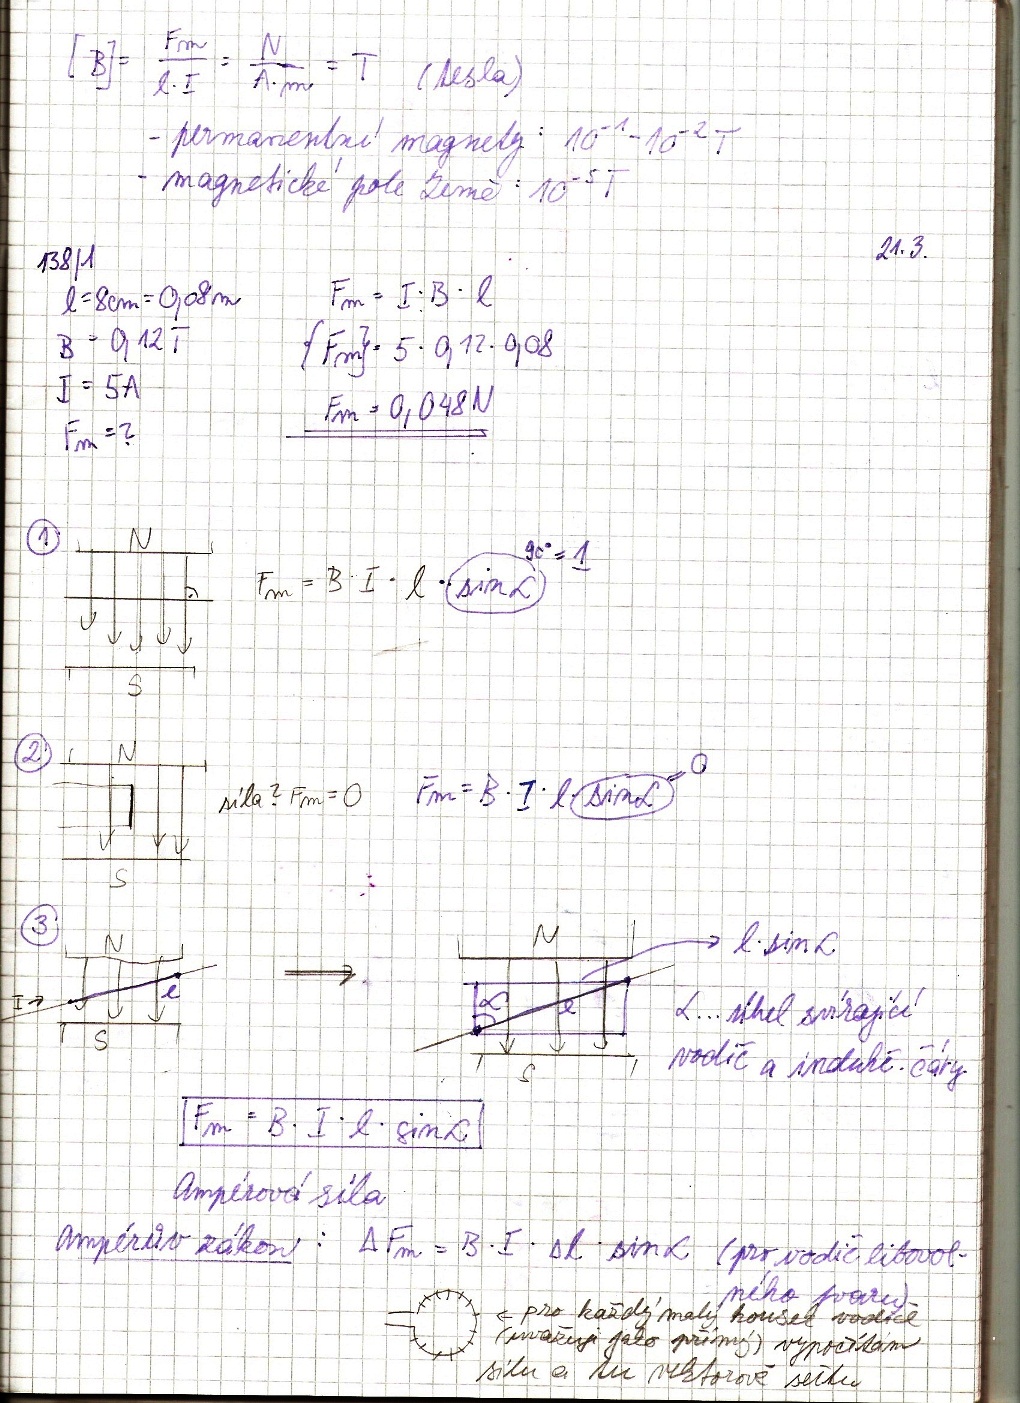 [B] = Fm / l·I = N / A·m = T (Tesla)
- permanentní magnety: 10⁻¹ - 10⁻² T
- magnetické pole Země: 10⁻⁵ T
21.3.
138/1
l = 8cm = 0,08m
Fm = I·B·l
B = 0,12T
{Fm} = 5·0,12·0,08
I = 5A
Fm = 0,048N
Fm = ?
1
N
90° = 1
Fm = B·I·l·sinα
S
2
N
síla? Fm = 0
Fm = B·I·l·sinα = 0
S
3
N
N
l·sinα
I→
l
α
l
α... úhel svírající
vodič a indukč. čáry
S
S
Fm = B·I·l·sinα
Ampérová síla
Ampérův zákon: ΔFm = B·I·Δl·sinα (pro vodič libovol-
ného tvaru)
← pro každý malý kousek vodiče
(uvažuji jako přímý) vypočítám
sílu a tu vektorově sečtu